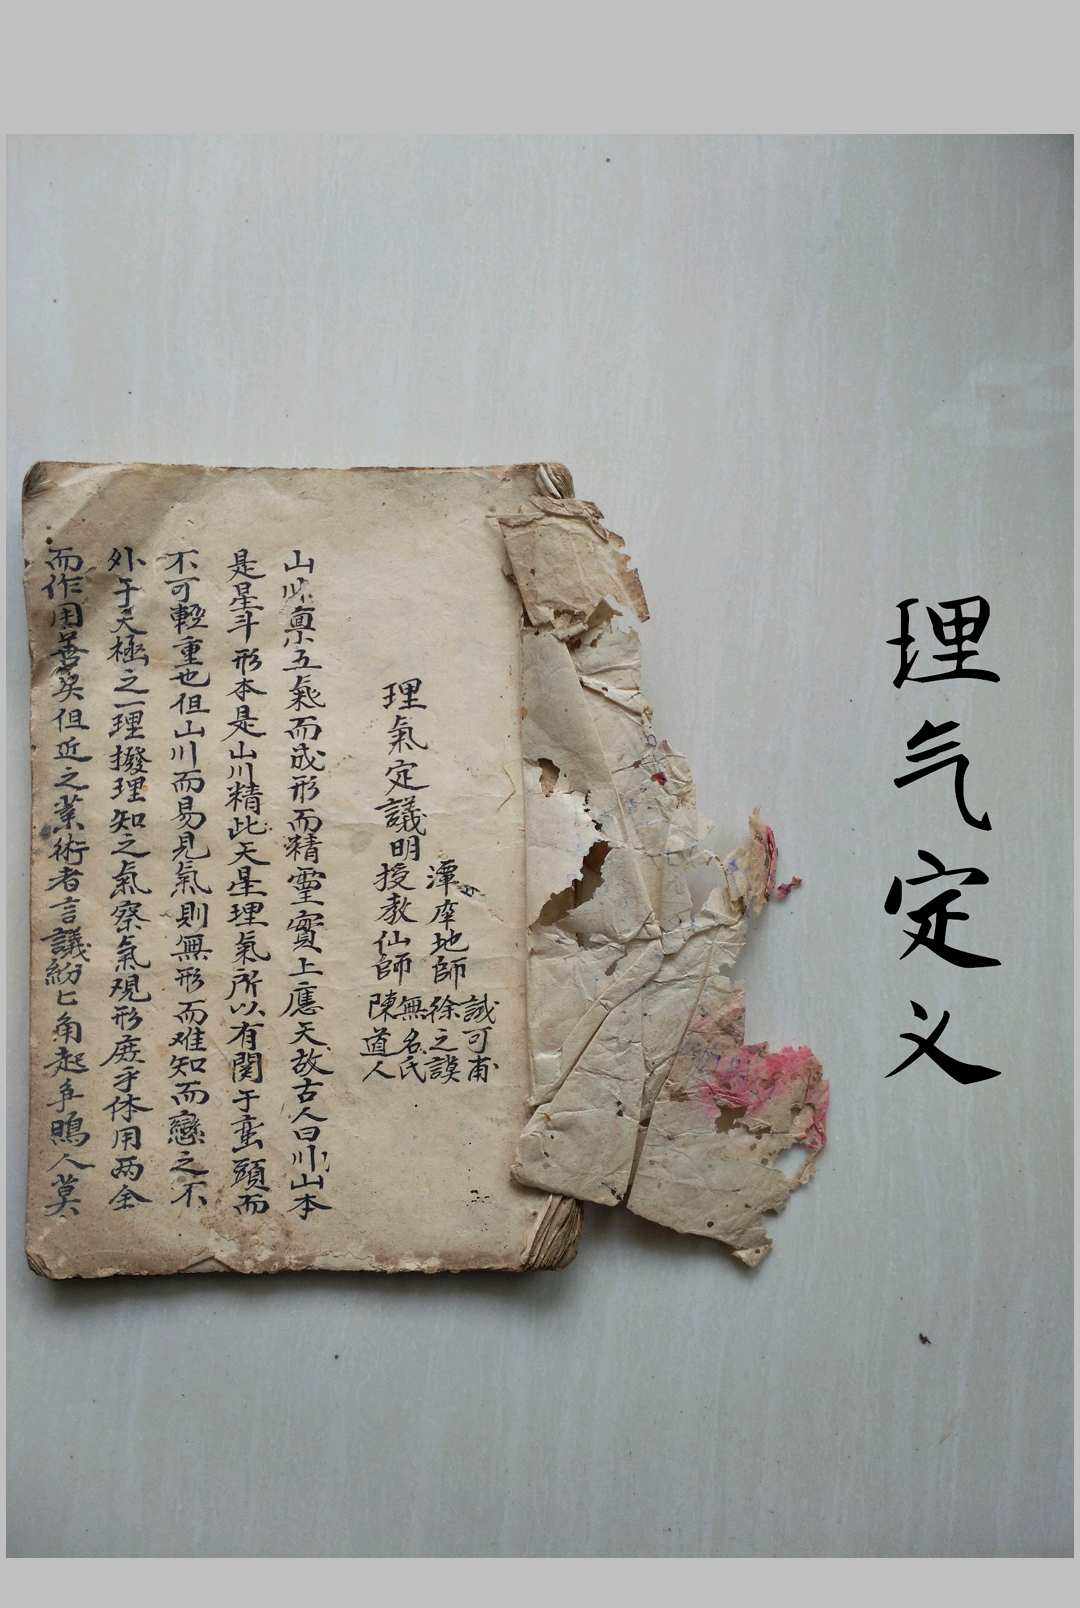 理气定义
理氣定議明
潭庠地師
徐之謨
誠可甫
授教仙師
無名氏
陳道人
山 稟五氣而成形而精靈實上應天故古人曰川山本
是星斗形本是山川精此天星理氣所以有関于巒頭而
不可輕重也但山川而易見氣則無形而难知而戀之不
外于天極之一理撥理知之氣察氣观形庶乎体用两全
而作用善矣但近之業術者言議紛匕角起争鳴人莫